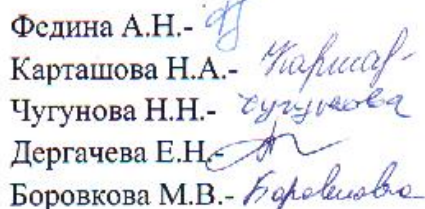 Федина А.Н.-
Карташова Н.А.- Карташ-
Чугунова Н.Н.- Чугунова
Дергачева Е.Н.-
Боровкова М.В.- Боровкова